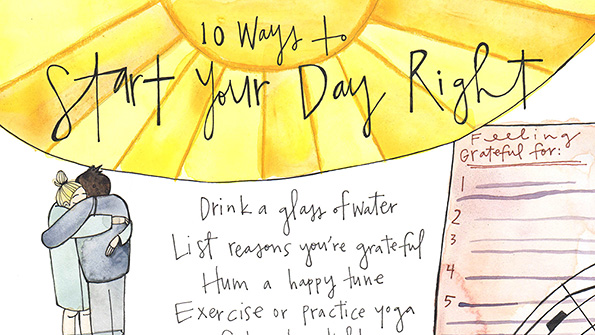 10 Ways to
Start Your Day Right
Feeling
Grateful for:
1
2
3
4
5
Drink a glass of water
List reasons you're grateful
Hum a happy tune
Exercise or practice yoga